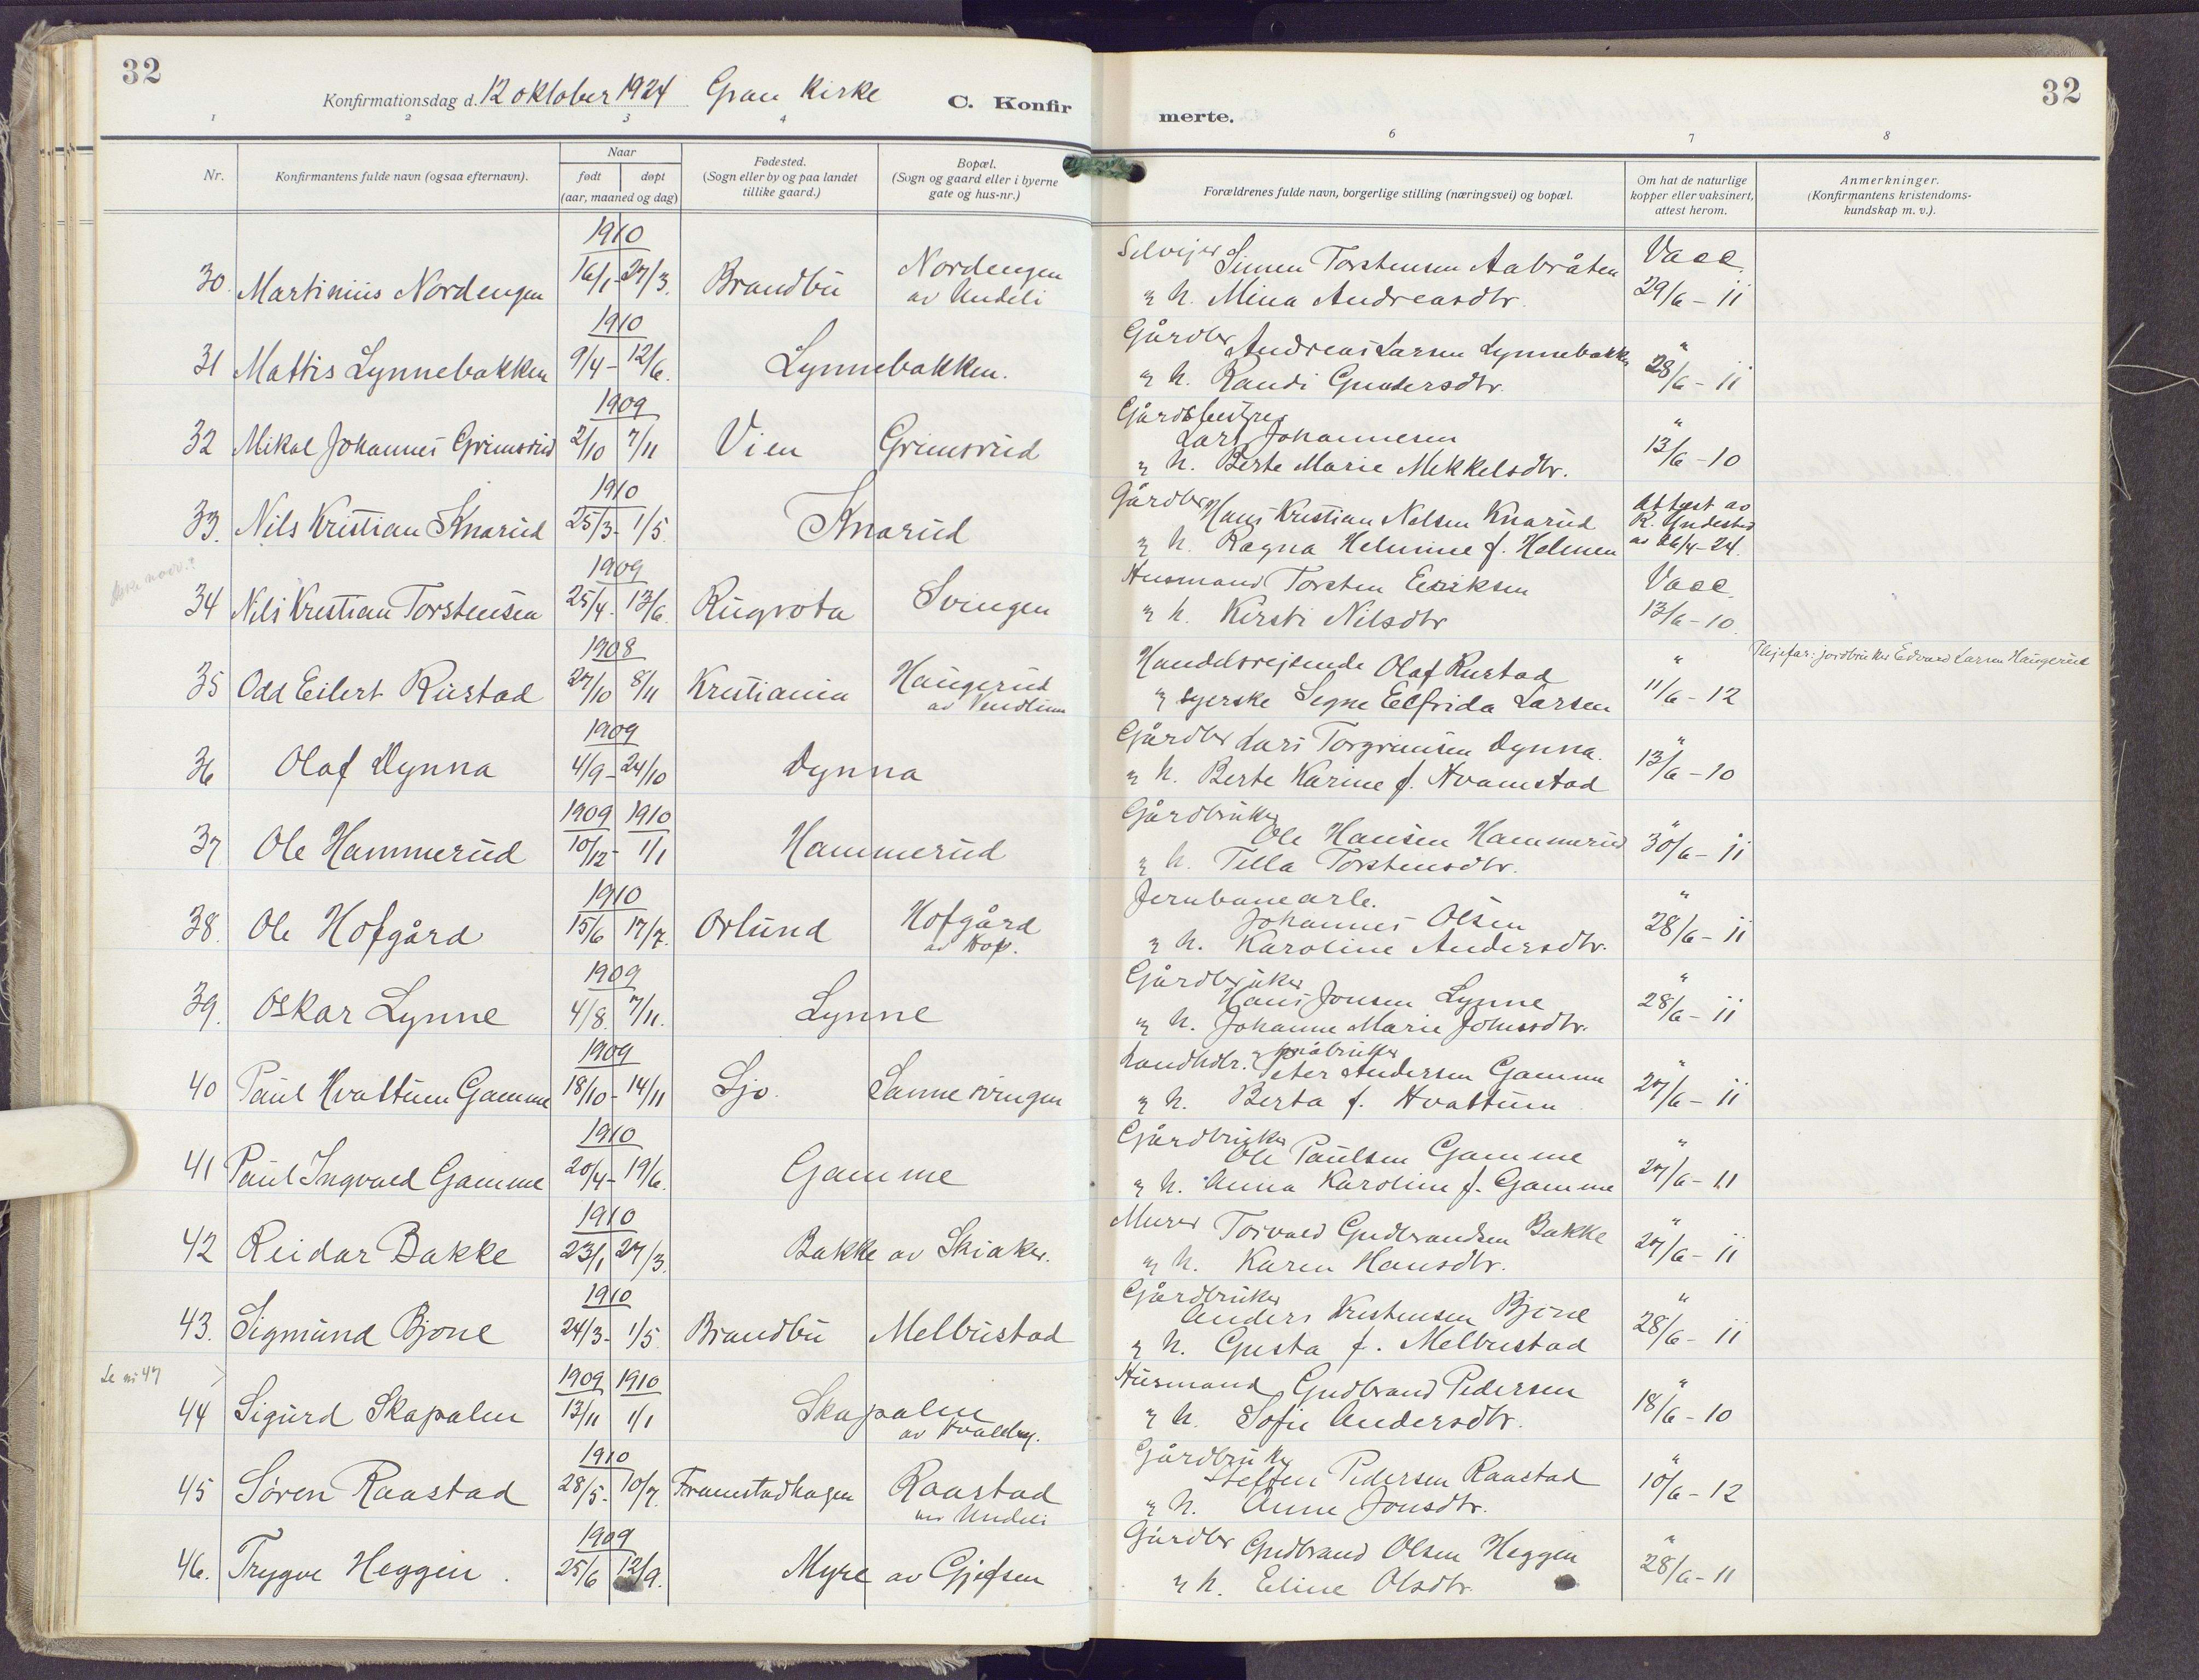 32
Konfirmationsdag d. 12 oktober 1924 Gran Kirke
C. Konfir
merte.
32
1 2 3 4 6 7 8
Nr.
Konfirmantens fulde navn (ogsaa efternavn).
Naar
født døpt
(aar, maaned og dag)
Fødested.
(Sogn eller by og paa landet
tillike gaard.)
Bopæl.
(Sogn og gaard eller i byerne
gate og hus-nr.)
Forældrenes fulde navn, borgerlige stilling (næringsvei) og bopæl.
Om hat de naturlige
kopper eller vaksinert,
attest herom.
Anmerkninger.
(Konfirmantens kristendoms-
kundskap m. v.).
1910
30. Martinius Nordengen 16/1 - 27/3. Brandbu Nordengen
av Undeli
Selveier Simen Torstensen Aabråten
& h. Mina Andreasdtr.
Vacc.
29/6 - 11
1910
31 Mattis Lynnebakken 9/4 - 12/6. Lynnebakken.
Gårdbr Andreas Larsen Lynnebakke
& h. Randi Gundersdtr.
" 28/6 - 11
1909
32 Mikal Johannes Grimsrud 2/10 7/11 Vien Grimsrud
Gårdsbestyrer
Lars Johannesen
& h. Berte Marie Mikkelsdtr.
" 13/6 - 10
1910
33. Nils Kristian Knarud 25/3 - 1/5. Knarud
Gårdbr Hans Kristian Nilsen Knarud
& h. Ragna Helmine f. Holmen
Attest av
R. Undested
av 26/4-24.
1909
34 Nils Kristian Torstensen 25/4 - 13/6. Rugrota Svingen
Husmand Torsten Eriksen
& h. Kirsti Nilsdtr
Vacc.
13/6 - 10.
1908
35 Odd Eilert Rustad 27/10 8/11 Kristiania Haugerud
Handelsreisende Olaf Rustad
& syerske Signe Elfrida Larsen
" 11/6 - 12
Pleiefar: jordbruker Edvard Larsen Haugerud
1909
36 Olaf Dynna 4/9 - 24/10 Dynna
Gårdbr Lars Torgrimsen Dynna.
& h. Berte Karine f. Hvamstad
" 13/6 - 10
1909 1910
37 Ole Hammerud 10/12 - 1/1 Hammerud
Gårdbruker
Ole Hansen Hammerud
& h. Tella Torstensdtr.
" 30/6 - 11
1910
38. Ole Hofgård 15/6 17/7. Orlund Hofgård
av Hof.
Jernbanearb.
Johannes Olsen
& h. Karoline Andersdtr.
" 28/6 - 11
1909
39. Oskar Lynne 4/8. 7/11. Lynne
Gårdbruker
Hans Jonsen Lynne
& h. Johanne Marie Johnsdtr.
" 28/6 - 11
1909
40 Paul Hvattum Gamme 18/10 - 14/11 Sjo. Sannesvingen
Landhdlr. & småbruker
Peter Andersen Gamme
& h. Berta f. Hvattum
" 27/6 - 11
1910
41 Paul Ingvald Gamme 20/4 - 19/6. Gamme
Gårdbruker
Ole Paulsen Gamme
& h. Anna Karoline f. Gamme
" 27/6 - 11
1910
42 Reidar Bakke 23/1 27/3. Bakke av Skiaker.
Murer Torvald Gudbrandsen Bakke
& h. Karen Hansdtr.
" 27/6 - 11
1910
43. Sigmund Bjone 24/3 - 1/5 Brandbu Melbustad
Gårdbruker
Anders Kristensen Bjone
& h. Gusta f. Melbustad
" 28/6 - 11
Se nr 47
1909 1910
44 Sigurd Skapalen 13/11 1/1 Skapalen
Husmand Gudbrand Pedersen
& h. Sofie Andersdtr.
" 18/6 - 10
1910
45 Søren Raastad 28/5 - 10/7. Framstadhagen Raastad
av Undeli
Gårdbruker
Steffen Pedersen Raastad
& h. Anne Jonsdtr.
" 10/6 - 12
1909
46. Trygve Heggen. 25/6 12/9. Myre av Gjefsen
Gårdbr Gudbrand Olsen Heggen
& h. Eline Olsdtr.
" 28/6 - 11